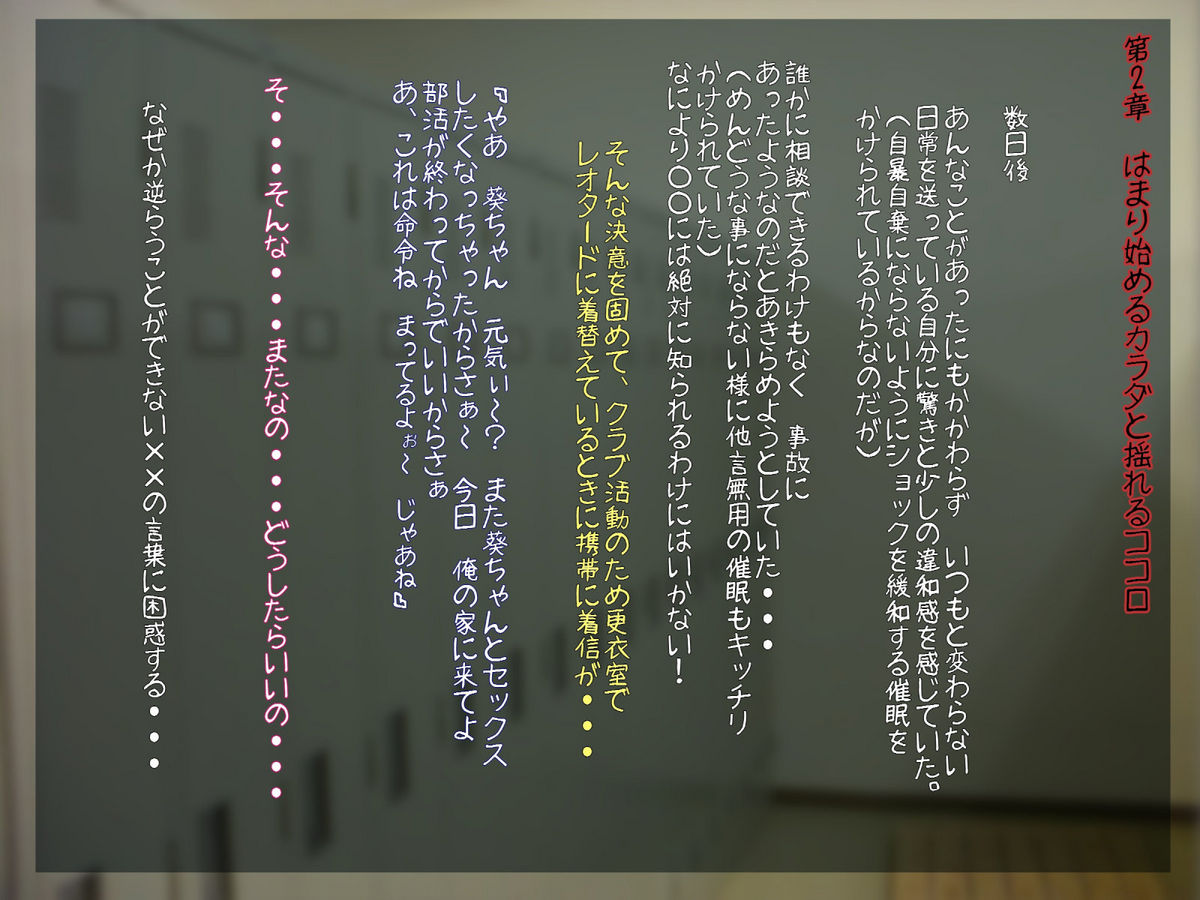 第2章　はまり始めるカラダと揺れるココロ
数日後
あんなことがあったにもかかわらず　いつもと変わらない
日常を送っている自分に驚きと少しの違和感を感じていた。
(自暴自棄にならないようにショックを緩和する催眠を
かけられているからなのだが)
誰かに相談できるわけもなく　事故に
あったようなのだとあきらめようとしていた・・・
(めんどうな事にならない様に他言無用の催眠もキッチリ
かけられていた)
なにより〇〇には絶対に知られるわけにはいかない！
そんな決意を固めて、クラブ活動のため更衣室で
レオタードに着替えているときに携帯に着信が・・・
『やあ　葵ちゃん　元気い～？　また葵ちゃんとセックス
したくなっちゃったからさぁ～　今日　俺の家に来てよ
部活が終わってからでいいからさぁ
あ、これは命令ね　まってるよぉ～　じゃあね』
そ・・・そんな・・・またなの・・・どうしたらいいの・・・
なぜか逆らうことができない××の言葉に困惑する・・・